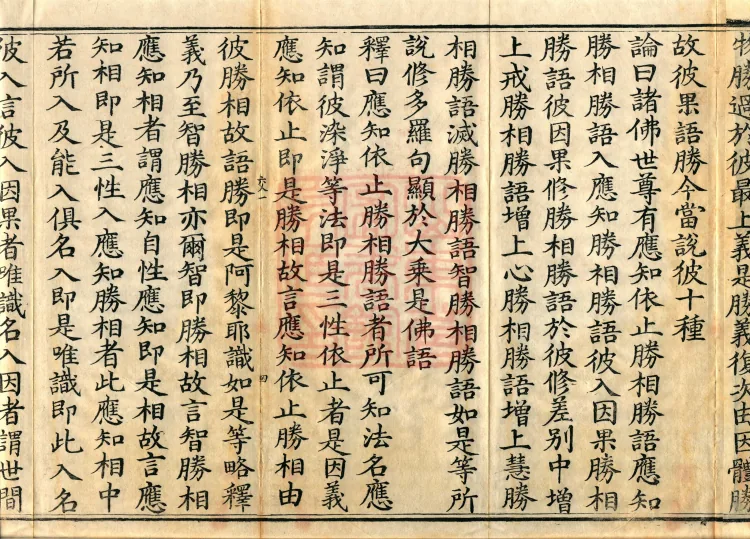 物勝過於彼最上義是勝義復次由因體勝
故彼果語勝今當說彼十種
論曰諸佛世尊有應知依止勝相勝語應知
勝相勝語入應知勝相勝語彼入因果勝相
勝語彼因果修勝相勝語於彼修差別中增
上戒勝相勝語增上心勝相勝語增上慧勝
相勝語滅勝相勝語智勝相勝語如是等所
說修多羅句顯於大乘是佛語
釋曰應知依止勝相勝語者所可知法名應
知謂彼染淨等法即是三性依止者是因義
應知依止即是勝相故言應知依止勝相由
交一 四
彼勝相故語勝即是阿黎耶識如是等略釋
義乃至智勝相亦爾智即勝相故言智勝相
應知相者謂應知自性應知即是相故言應
知相即是三性入應知勝相者此應知相中
若所入及能入俱名入即是唯識即此入名
彼入言彼入因果者唯識名入因者謂世間